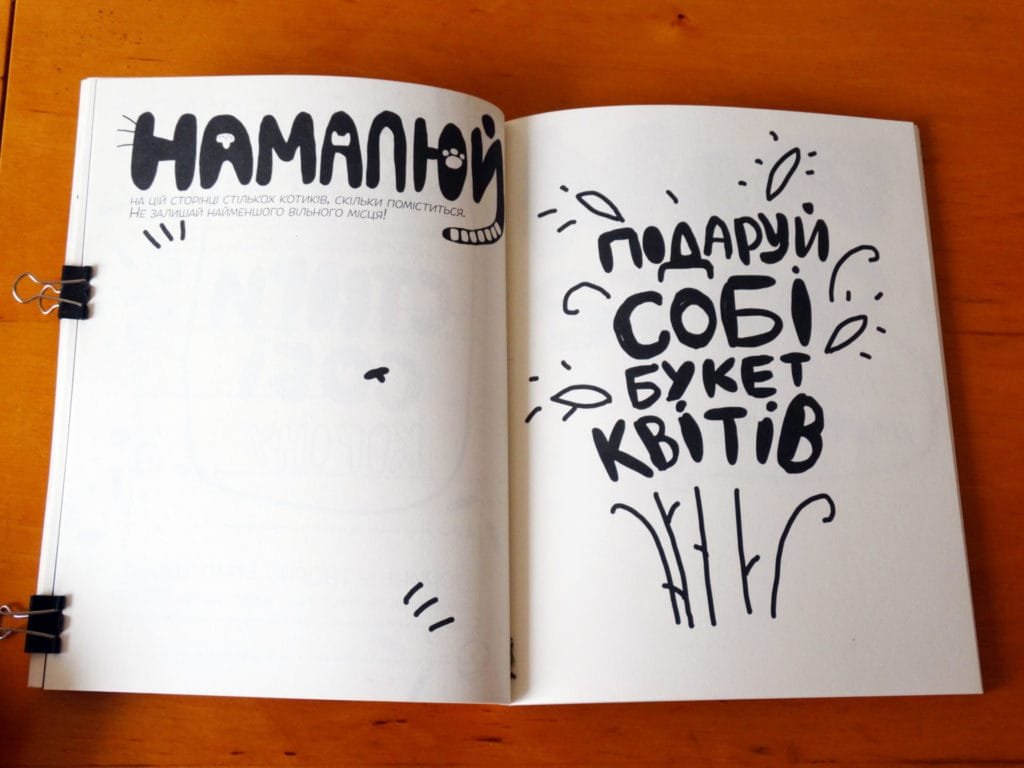 НАМАЛЮЙ
НА ЦІЙ СТОРІНЦІ СТІЛЬКОХ КОТИКІВ, СКІЛЬКИ ПОМІСТИТЬСЯ.
НЕ ЗАЛИШАЙ НАЙМЕНШОГО ВІЛЬНОГО МІСЦЯ!
ПОДАРУЙ
СОБІ
БУКЕТ
КВІТІВ